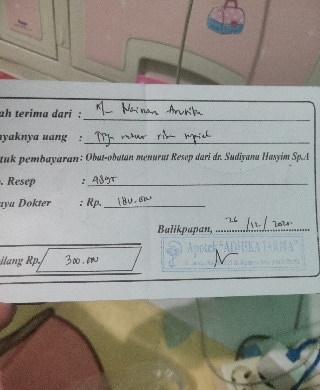 ah terima dari : An. Nainan Arunika
nyaknya uang : Tiga ratus ribu rupiah
tuk pembayaran: Obat-obatan menurut Resep dari dr. Sudiyana Hasyim Sp.A
. Resep :
aya Dokter : Rp. 180.000
Balikpapan, 26/12/2020
Apotek "ADHIKA FARMA"
ilang Rp. 300.000